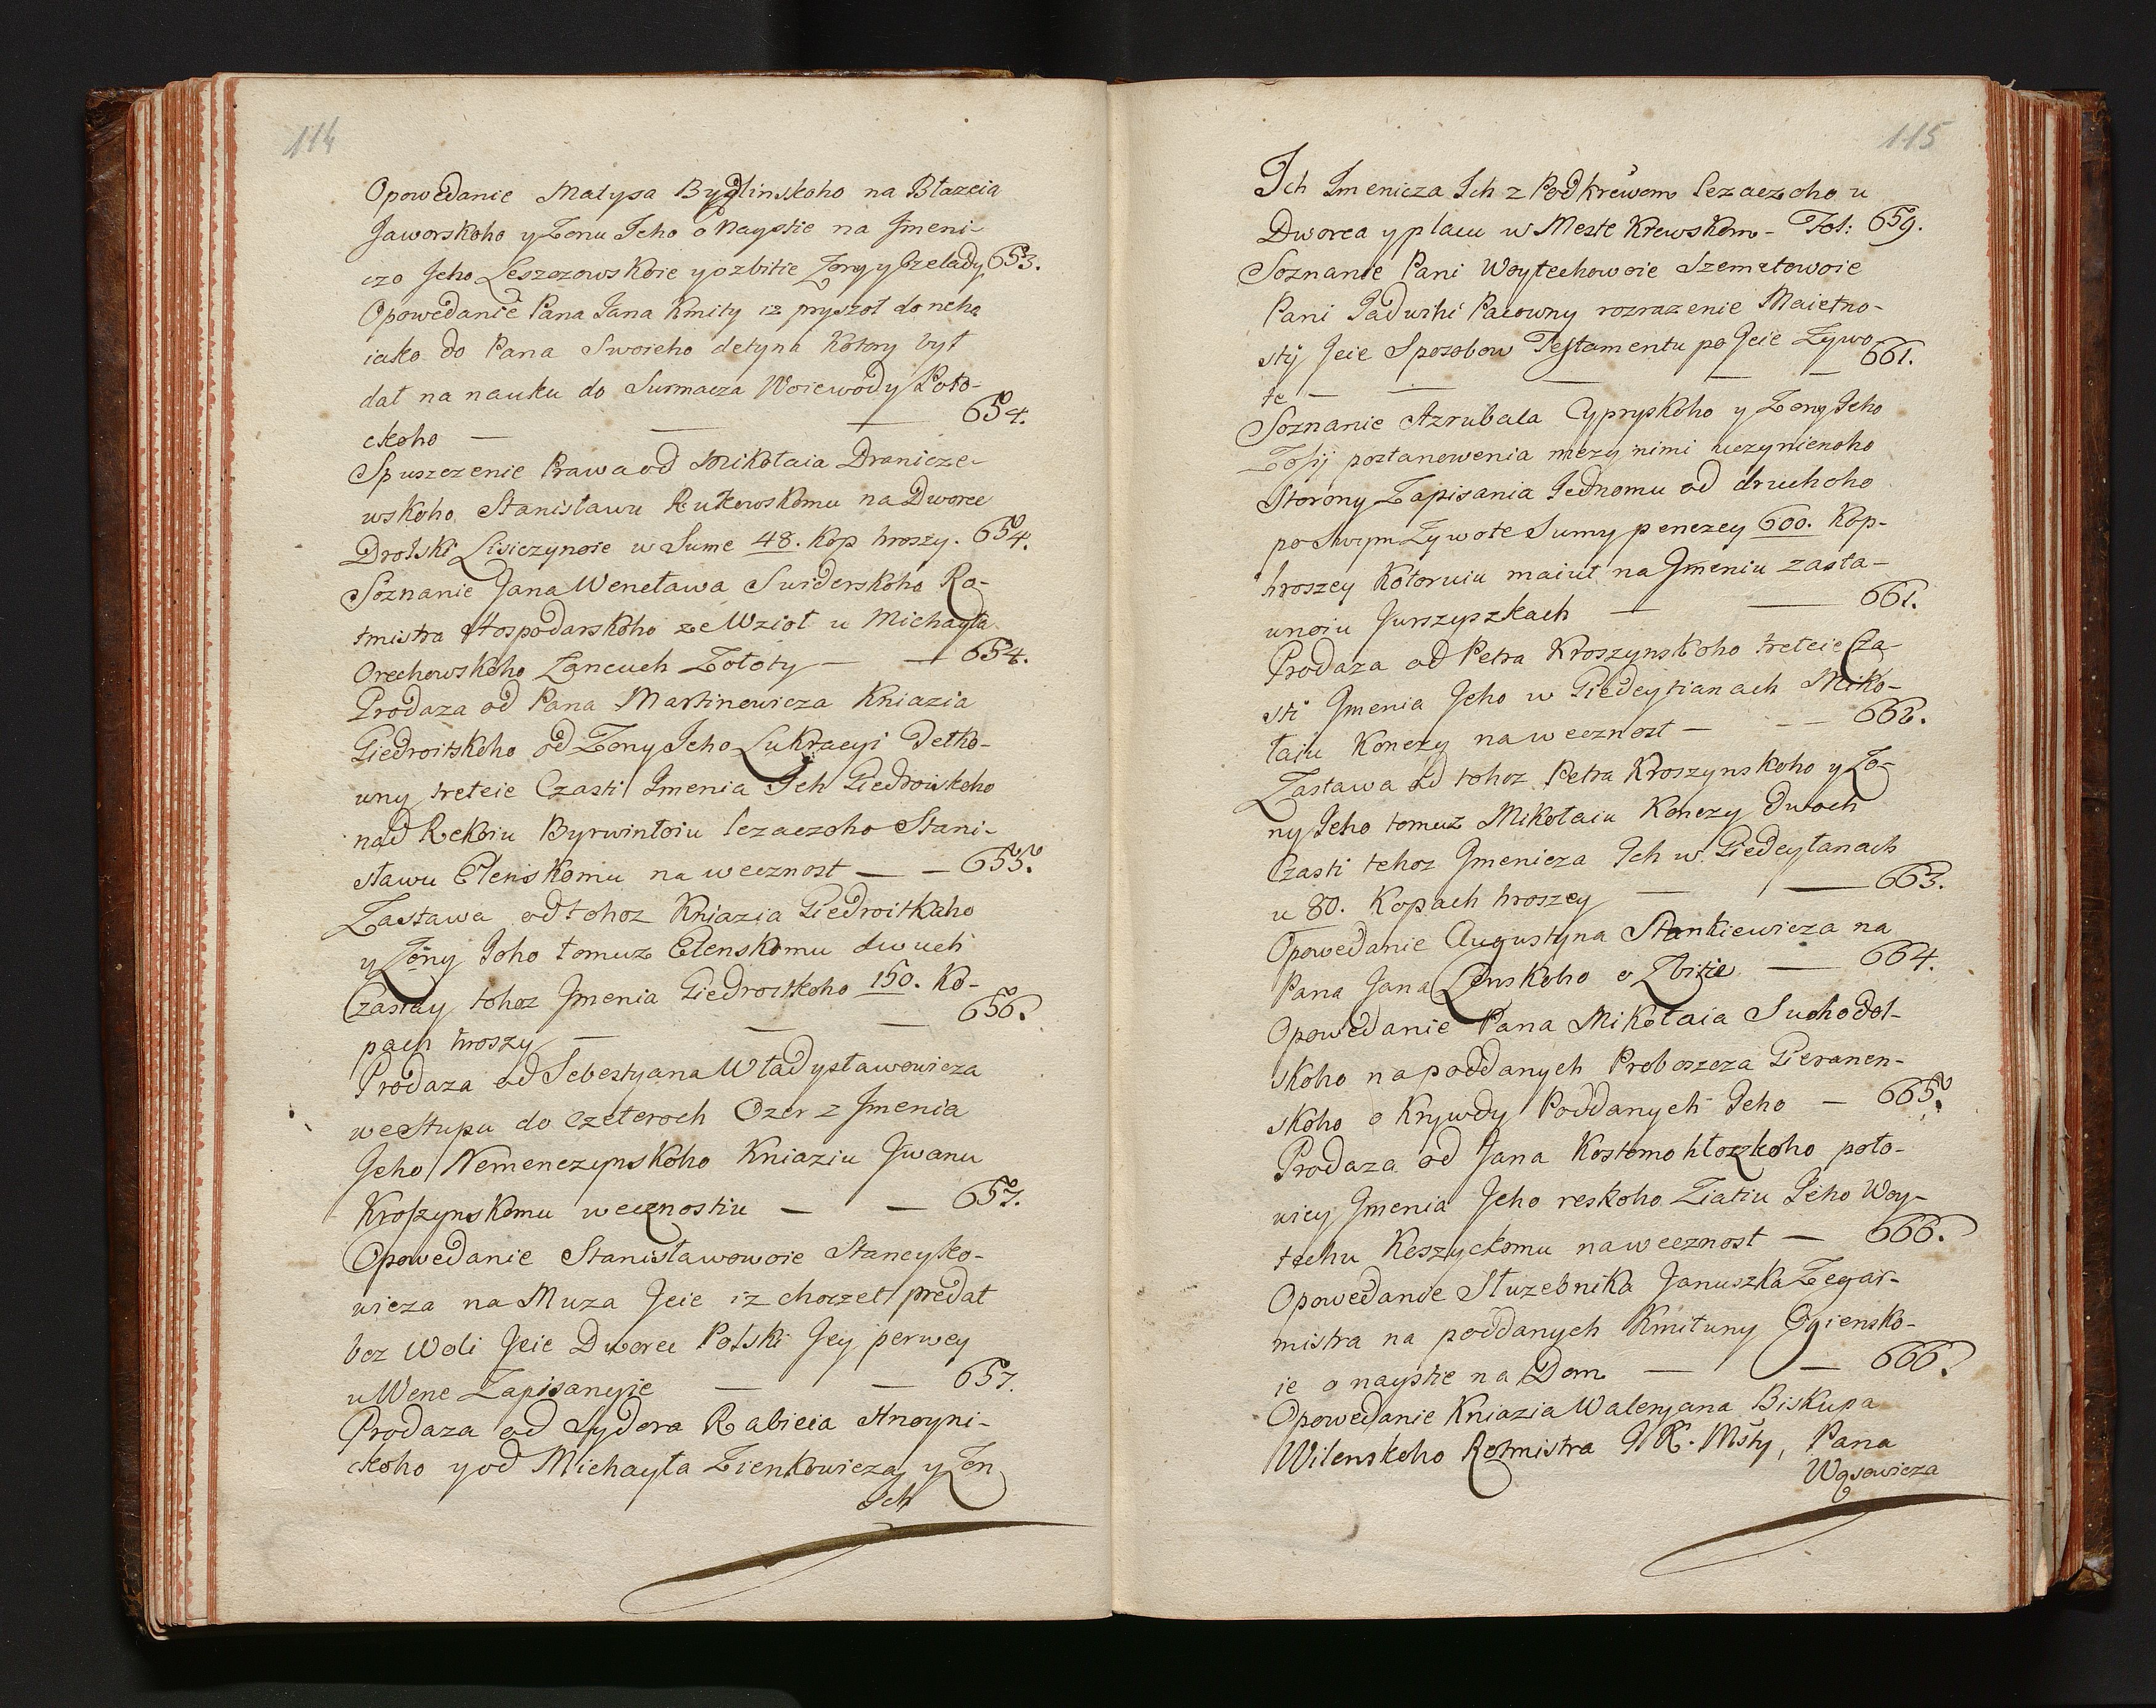 114
Opowedanie Matysa Bydlinskoho na Błażeia
Jaworskoho y Żonu Jeho o Nayście na Jmeni-
czo Jeho Leszczowskoie y o zbitie Żony y Czeladij 653.
Opowedanie Pana Jana Kmity iż pryszoł do neho
iako do Pana Swoieho detyna Kotory był
dał na nauku do Surmacza Woiewody Poło-
ckoho — — — 654.
Spuszczenie Prawa od Mikołaia Dranicze-
wskoho Stanisławu Rukowskomu na Dworec
Drolski Lisiczynoie w Sume 48. Kop hroszy. 654.
Soznanie Jana Wencława Swiderskoho Ro-
tmistra Hospodarskoho że Wzioł u Michayła
Orechowskoho Łancuch Zołoty — — 654.
Prodaża od Pana Martinowicza Kniazia
Giedroitskoho od Żony Jeho Lukracyi Detko-
wny treteie Czasti Jmenia Jch Giedroiskoho
nad Rekoiu Byrwintoiu leżaczoho Stani-
sławu Elenskomu na wecznost — — 655.
Zastawa od tohoż Kniazia Giedroitkaho
y Żony Joho tomuż Elenskomu dwuch
Czastey tohoż Jmenia Giedroitskoho 150. Ko-
pach hroszy — — — 656.
Prodaża od Sebestyana Władysławowicza
westupu do Czeteroch Ozer z Jmenia
Jeho Nemenczynskoho Kniaziu Jwanu
Kroszynskomu wecznostiu — — 657.
Opowedanie Stanisławowoie Stancyko-
wicza na Muża Jeie iż choczet predat
bez Woli Jeie Dworec Polski Jey perwey
u Wene Zapisanyie — — 657.
Prodaża od Sydora Rabieia Hnoyni-
ckoho y od Michayła Zienkowicza y Żon
Jch
115
Jch Jmenicza Jch z Podkrewom leżaczoho u
Dworca y placu w Meste Krewskom - Fol: 659.
Soznanie Pani Woytechowoie Szemetowoie
Pani Jadwihi Pacowny rozrażenie Maietno-
stij Jeie Sposobow Testamentu po Jeie Żywo-
te — — — — — 661.
Soznanie Azrubala Cypryskoho y Żony Jeho
Zofij postanowenia meży nimi uczynienoho
Storony Zapisania Jednomu od druhoho
po Swym Żywote Sumy penezey 600. Kop-
hroszey Kotoruiu maiut na Jmeniu zasta-
wnoiu Jurszyszkach — — 661.
Prodaża od Petra Kroszynskoho treteie Cza-
sti Jmenia Jeho w Giedeytianach Miko-
łaiu Konczy na wecznost — — — 662.
Zastawa od tohoż Petra Kroszynskoho y Żo-
ny Jeho tomuż Mikołaiu Konczy dwoch
Czasti tehoż Jmenicza Jch w Giedeytanach
u 80. Kopach hroszey — — 663.
Opowedanie Augustyna Stankiewicza na
Pana Jana Lenskoho o Zbitie — 664.
Opowedanie Pana Mikołaia Suchodol-
skoho na poddanych Proboszcza Gieranen-
skoho o Krywdy Poddanych Jeho — 665.
Prodaża od Jana Kostomohłozkoho poło-
wicy Jmenia Jeho reskoho Ziatiu Jeho Woy-
techu Koszyckomu na wecznost — 666.
Opowedanie Służebnika Januszka Zegar-
mistra na poddanych Kmituny Ogiensko-
ie o nayście na Dom — — 666.
Opowedanie Kniazia Waleryana Biskupa
Wilenskoho Rotmistra J K. Msty, Pana
Wąsowicza